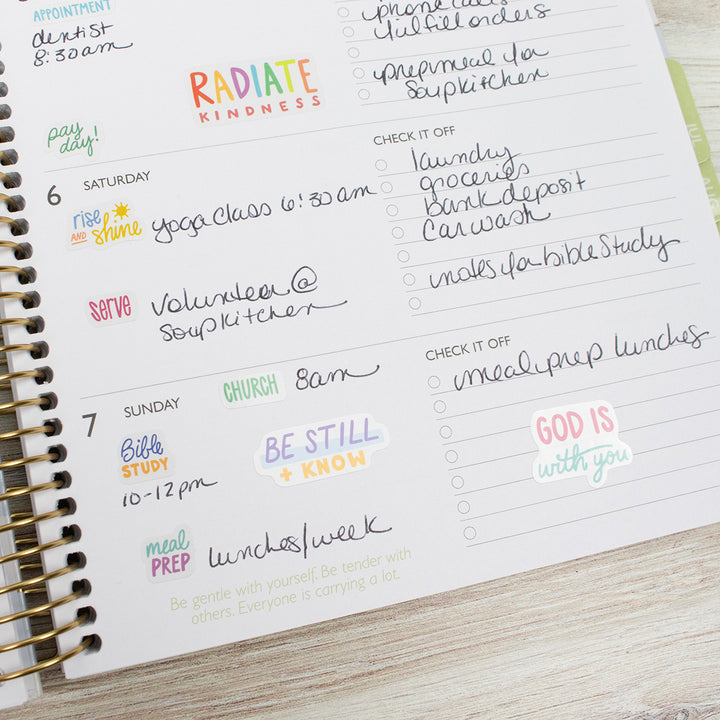 APPOINTMENT
dentist
8:30am
phone calls
fulfill orders
prep meal for
soup kitchen
RADIATE
KINDNESS
pay
day!
6 SATURDAY
rise
AND shine
yoga class 6:30am
serve
volunteer @
soup kitchen
CHECK IT OFF
laundry
groceries
bank deposit
car wash
notes for bible study
7 SUNDAY
CHURCH 8am
Bible
STUDY
10-12pm
BE STILL
+ KNOW
meal
PREP
lunches/week
CHECK IT OFF
meal prep lunches
GOD IS
with you
Be gentle with yourself. Be tender with
others. Everyone is carrying a lot.
JUL